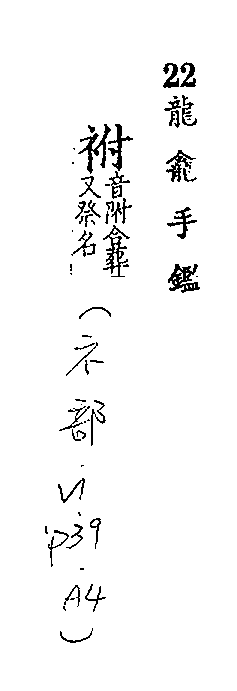 22龍龕手鑑
祔
音附合葬
又祭名
(衣部.V1.p39.A4)